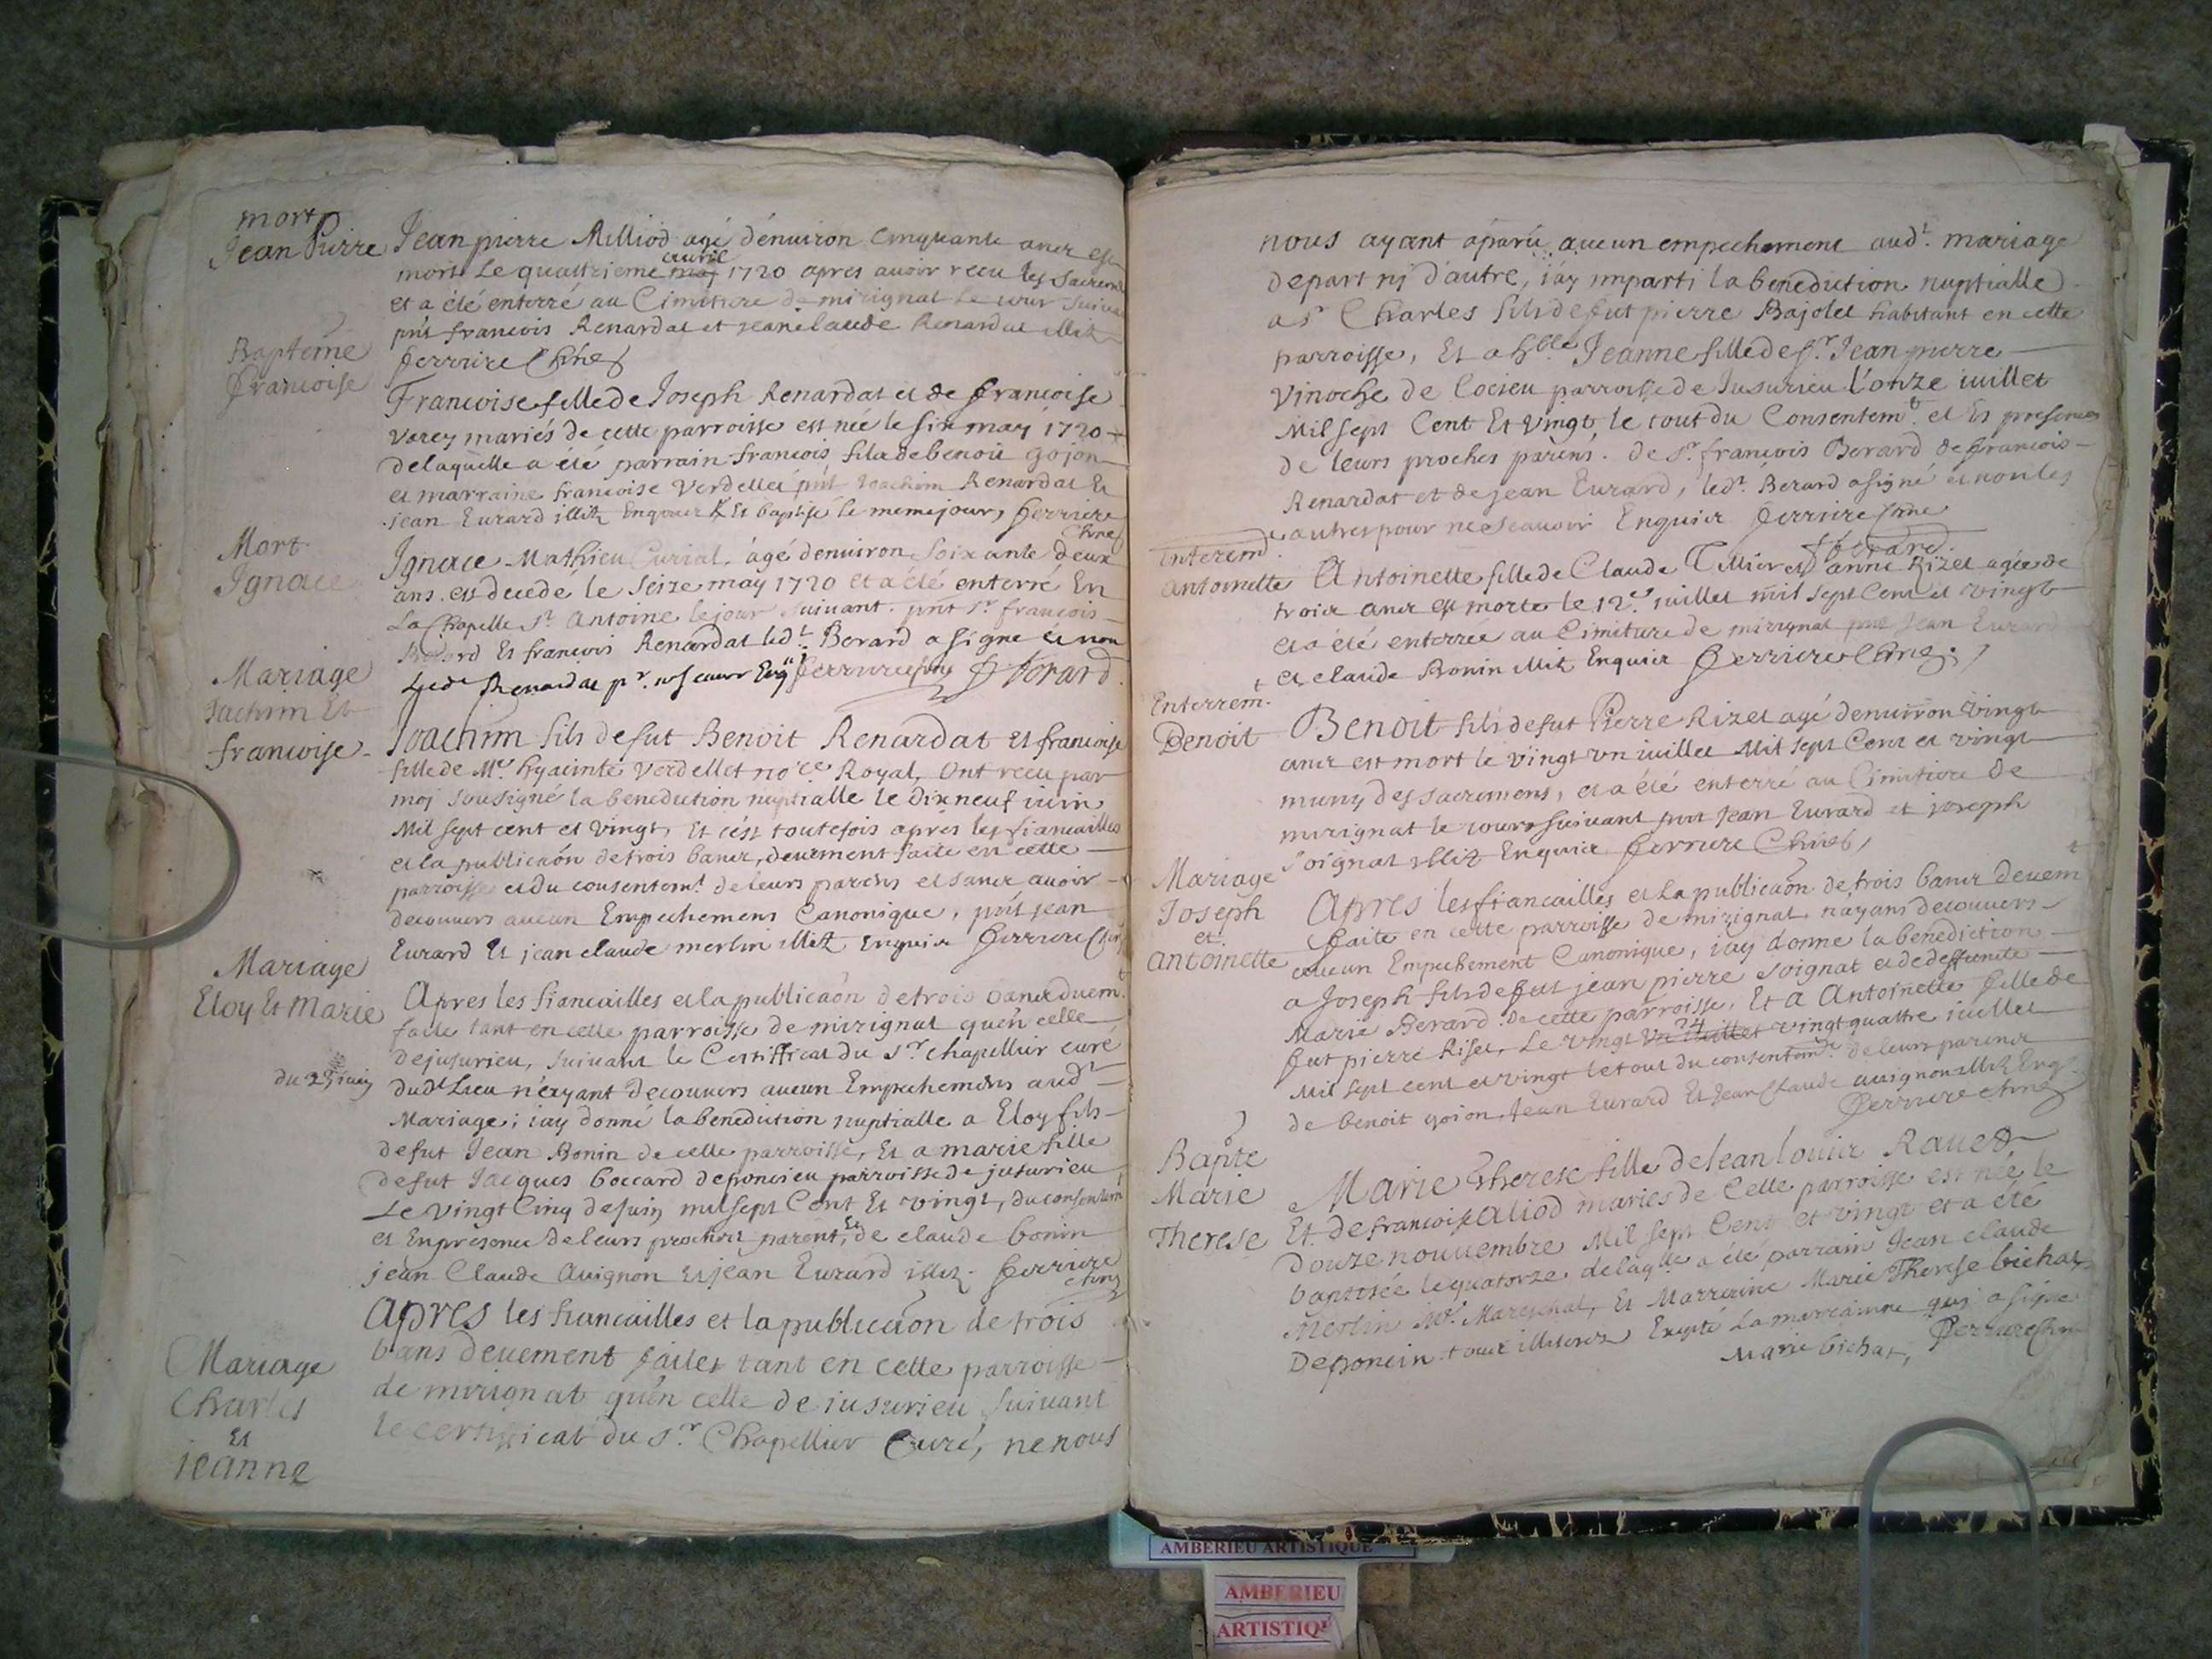 mort
Jean Pierre
Jean pierre Milliod agé d'énuiron Cinquante ancz est
avril
mort Le quattrieme may 1720 apres auoir recu les sacrem
et a été enterré au Cimitiere de mirignat le iour suiuan
pnt francois Renardat et jean claude Renardat illitz
ferriere Chne
Bapteme
francoise
Francoise fille de Joseph Renardat et de francoise
Verey mariés de cette parroisse est née le six may 1720
delaquelle a été parrain francois fils de benoit gojon
et marraine francoise Verdellet pnt Joachim Renardat Et
jean Eurard illitz Enquier & Et baptisé le meme jour, ferriere
Chne
Mort
Ignace
Ignace Mathieu Curial, âgé denuiron soixante deux
ans est decedé le seize may 1720 et a été enterré En
La Chapelle St Antoine le jour suiuant. pnt sr francois
Berard Et francois Renardat ledt Berard a signé et non
Ledt Renardat pr ne scauoir Enq ferriere chne f berard
Mariage
Jachim Et
francoise
Joachim fils defut Benoit Renardat et francoise
fille de Me hyacinte Verdellet nore Royal, Ont recu par
moj sousigné la benediction nuptialle le Dix neuf iuin
Mil sept cent et vingt, Et c'est toutefois aprés les fiancailles
et la publicaôn de trois bancz, deuement faite en cette
parroisse et du consentemt de leurs parens et sancz auoir
decouuers aucun Empechemens Canonique, pnt jean
Eurard Et jean claude merlin illitz enquier ferriere Chne
Mariage
Eloy Et Marie
du 25 iuin
Apres les fiancailles et la publicaôn de trois bancz duemt
faite tant en cette parroisse de mirignat qu'en celle
de jusurieu, suiuant le Certifficat du sr chapellier curé
dudt Lieu n'ayant decouuers aucun Empechemens audt
Mariage; iay donné la benediction nuptialle a Eloy fils
defut Jean Bonin de cette parroisse, Et a marie fille
defut Jacques boccard de poncieu parroisse de jusurieu
Le vingt Cinq de juin mil sept Cent Et vingt, du consentemt
et En presence de leurs proches parent, Et de claude bonin
jean Claude Auignon Et jean Eurard illitz. ferriere
chne
Mariage
Charles
Et
jeanne
Apres les fiancailles et la publicaôn de trois
bans deuement faites tant en cette parroisse
de mirignat qu'en celle de iusurieu suiuant
le certificat du sr Chapellier Curé, ne nous
nous ayant aparû aucun empechement audt mariage
de part nj d'autre, i'ay imparti la benediction nuptialle
a sr Charles fils de fut pierre Bajolet habitant en cette
parroisse, Et a hble Jeanne fille de sr Jean pierre
Vinoche de Cocieu parroisse de Jusurieu l'onze iuillet
Mil sept Cent Et Vingt, le tout du Consentemt et Es presences
de leurs proches paréns. de sr francois Berard de francois
Renardat et de jean Eurard, ledt Berard a signé et non les
autres pour ne scauoir Enquier ferriere chne
f berard
Enteremt
Antoinette
Antoinette fille de Claude Tillier et d'anne Rizet agée de
trois ancz est morte le 12e iuillet mil sept Cent et vingt
et a été enterrée au Cimitiere de mirignat pnt Jean Eurard
et claude Bonin illitz Enquier ferriere Chne
Enterremt
Benoit
Benoit fils defut Pierre Rizet agé denuiron Vingt
ancz est mort le Vingt vn iuillet Mil sept Cent et vingt
muny des sacremens, et a été enterré au Cimitiere de
mirignat le iour suiuant pnt Jean Eurard et joseph
soignat illitz Enquier ferriere Chne
Mariage
Joseph
et
Antoinette
Apres les fiancailles et la publicaôn de trois bancz deuemt
faite en cette parroisse de mirignat, n'ayans decouuers
aucun Empechement Canonique, i'ay donne la benediction
a Joseph fils defut jean pierre soignat et de deffuncte
Marie Berard de cette parroisse, Et a Antoinette fille de
24
fut pierre Riset, Le vingt vn iuillet vingt quattre iuillet
Mil sept cent et vingt le tout du consentemt de leurs parencz
de benoit gojon, Jean Eurard Et Jean Claude auignon illitz Enq
ferriere chne
Bapte
Marie
Therese
Marie Therese fille de Jean louiz Rauet
Et de francoise Aliod mariés de Cette parroisse est née le
Douze nouuembre Mil sept Cent et vingt et a été
baptisée le quatorze, delaqlle a été parrain Jean claude
Merlin Me Mareschal, Et Marreine Marie Therese bichat
De poncin tous illiterez Exepté La marrainne quj a signé
Marie bichat, ferriere Chne
AMBERIEU ARTISTIQUE
AMBERIEU
ARTISTIQU